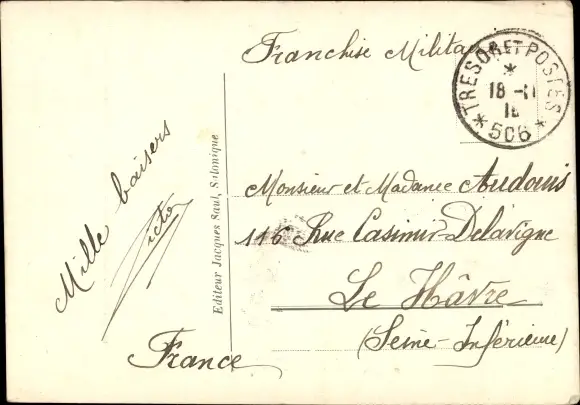 Franchise Militaire
TRESOR ET POSTES
18 - 11
18
* 506 *
Mille baisers
Victor
Editeur Jacques Saul, Salonique
Monsieur et Madame Audouis
116 Rue Casimir-Delavigne
Le Hâvre
(Seine-Inférieure)
France